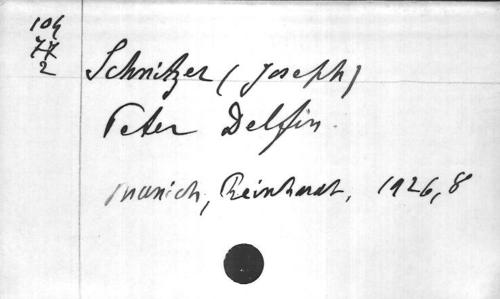 104
77
2
Schnitzer (Joseph)
Peter Delfin.
Munich, Reinhardt, 1926, 8